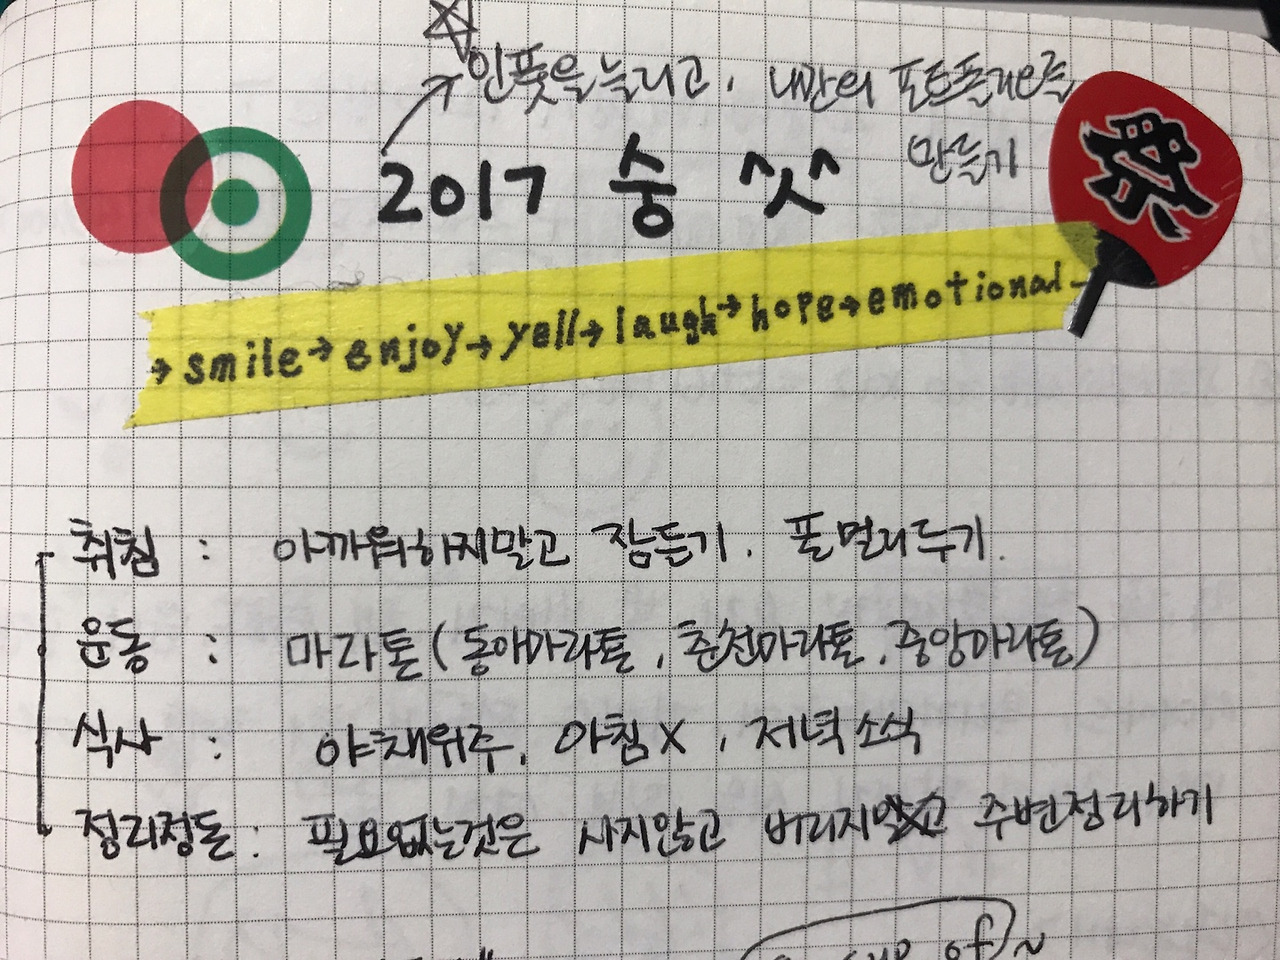 인풋을 늘리고, 나만의 포트폴리오를
만들기
2017 숭 ^ㅅ^
祭
→ smile → enjoy → yell → laugh → hope → emotional →
취침 : 아까워하지말고 잠들기. 폰 멀리두기.
운동 : 마라톤 (동아마라톤, 춘천마라톤, 중앙마라톤)
식사 : 야채위주, 아침 X, 저녁소식
정리정돈 : 필요없는것은 사지않고 버리지 주변정리하기
cup of ~